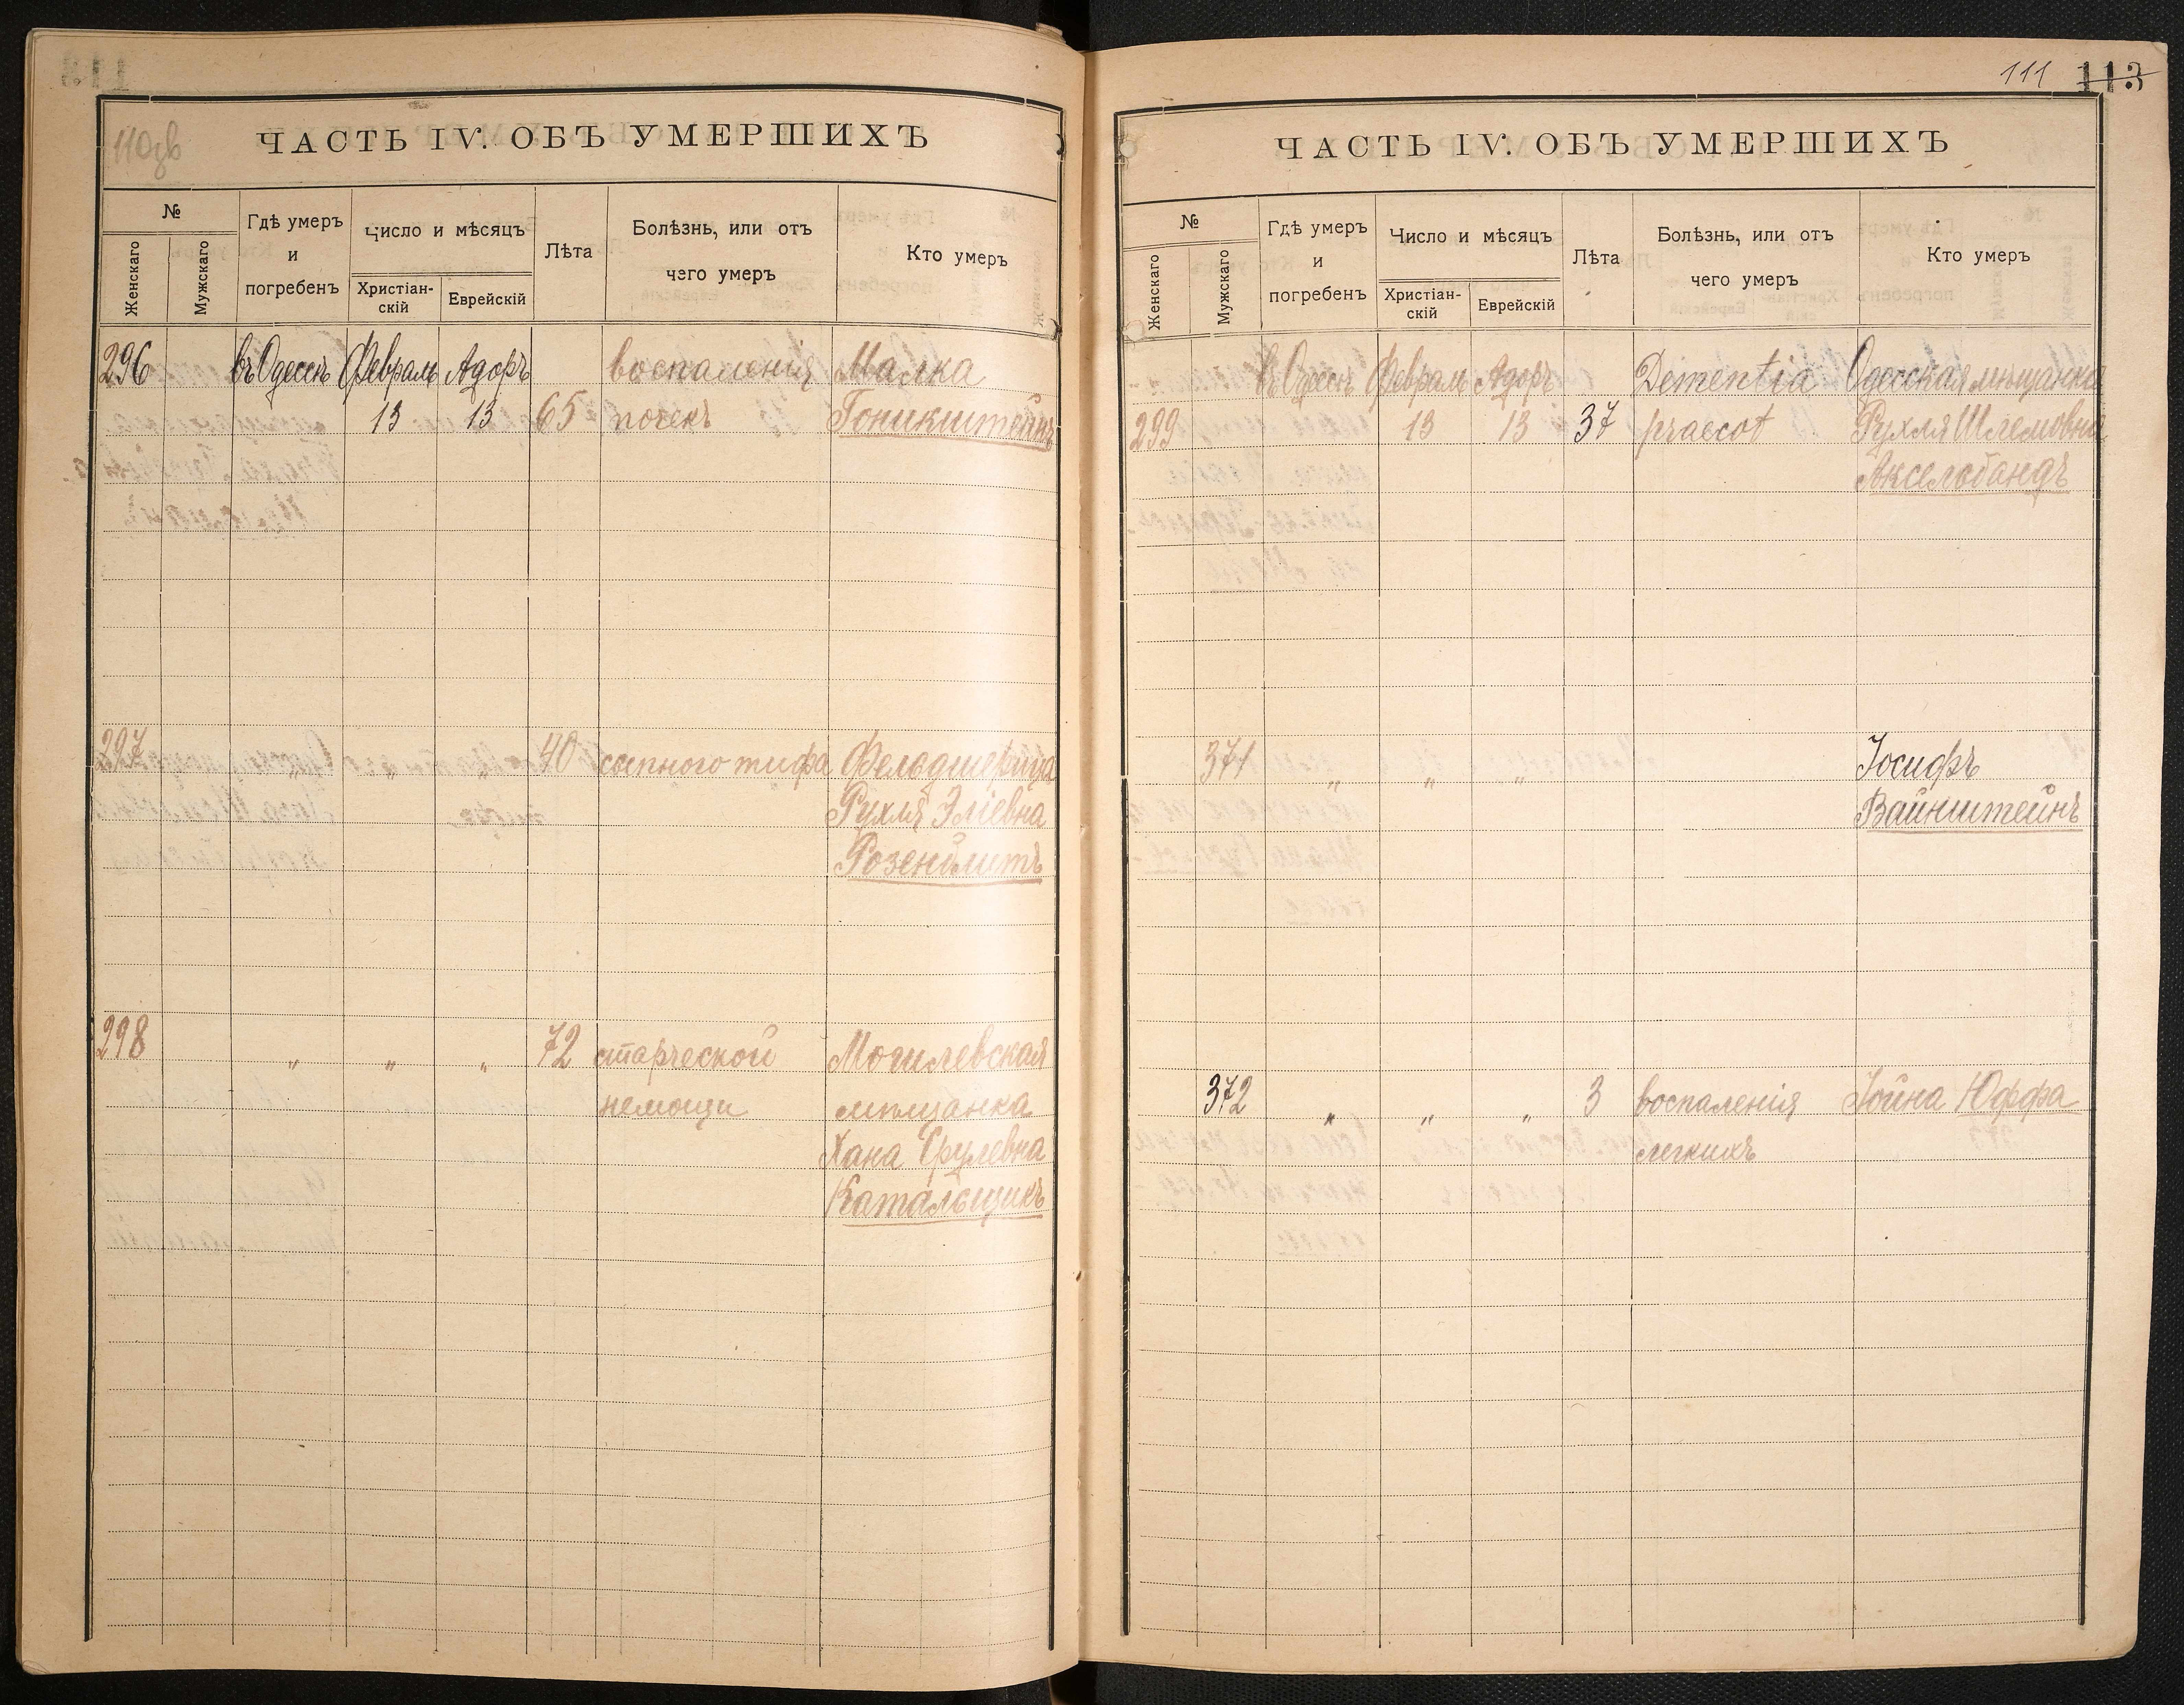 110зв
ЧАСТЬ IV. ОБЪ УМЕРШИХЪ
№
Женскаго
Мужскаго
Гдѣ умеръ
и
погребенъ
Число и мѣсяцъ
Христіан-
скій
Еврейскій
Лѣта
Болѣзнь, или отъ
чего умеръ
Кто умеръ
296 въ Одессѣ Февраль Адоръ воспаленія Малка
13 13 65 почекъ Гоникштейнъ
297 " " " 40 сыпного тифа Фельдшерица
Рухля Эліевна
298 " " " 72 старческой Могилевская
немощи мѣщанка
Хана Срулевна
Катальщикъ
111 113
ЧАСТЬ IV. ОБЪ УМЕРШИХЪ
№
Женскаго
Мужскаго
Гдѣ умеръ
и
погребенъ
Число и мѣсяцъ
Христіан-
скій
Еврейскій
Лѣта
Болѣзнь, или отъ
чего умеръ
Кто умеръ
въ Одессѣ Февраль Адоръ Dementia Одесская мѣщанка
299 13 13 37 praecot Рухля Шлемовна
Аксельбандъ
371 " " " Іосифъ
Вайнштейнъ
372 " " " 3 воспаленія Іойна Юффа
легкихъ